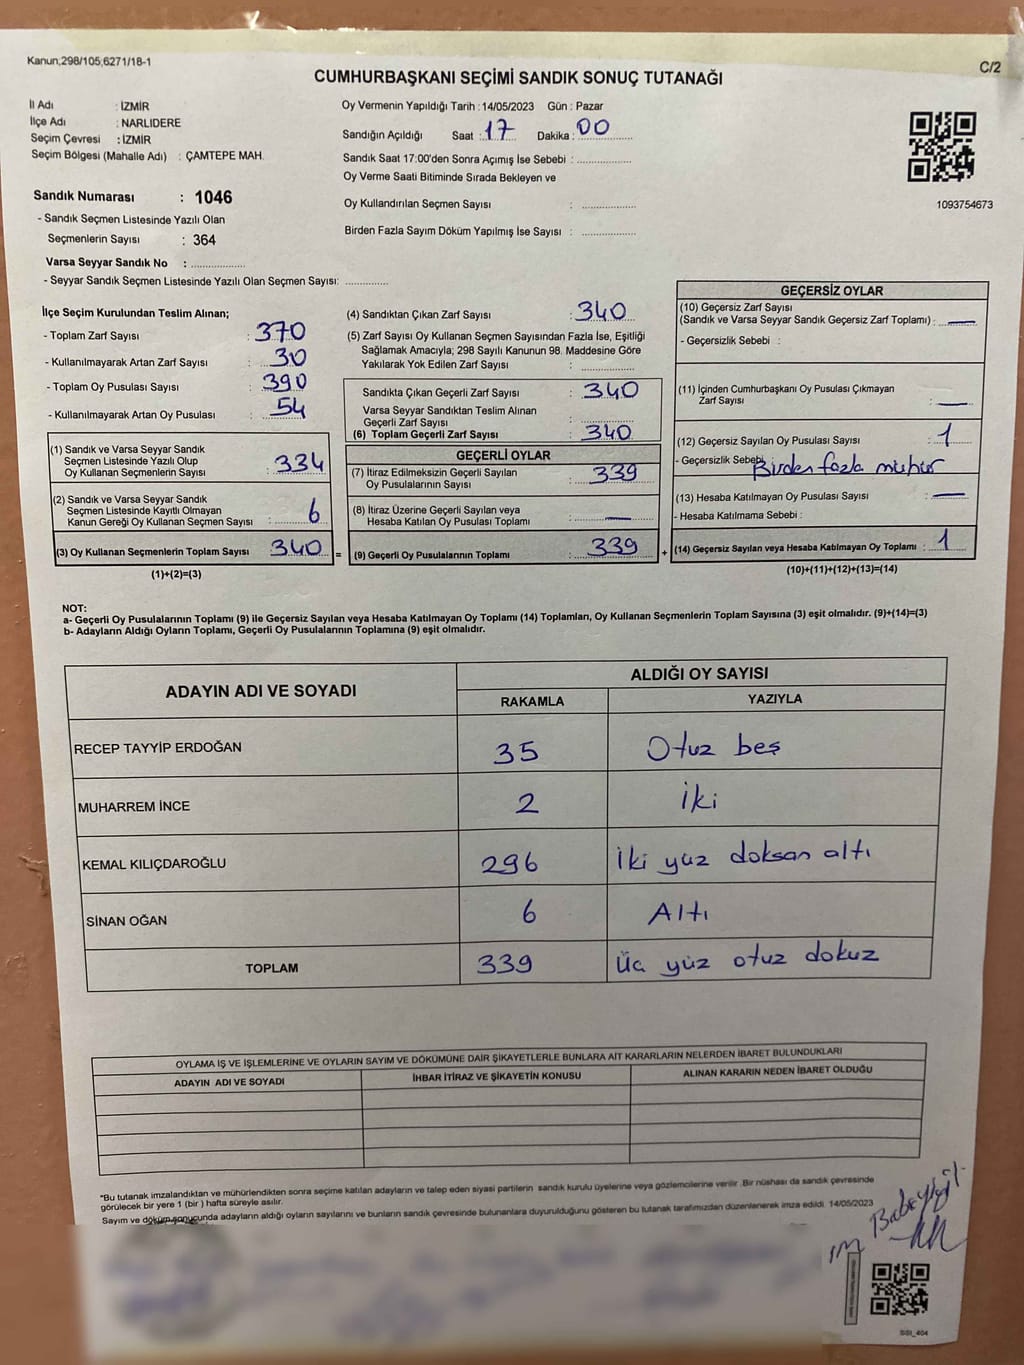 Kanun;298/105;6271/18-1
C/2
CUMHURBAŞKANI SEÇİMİ SANDIK SONUÇ TUTANAĞI
İl Adı : İZMİR
İlçe Adı : NARLIDERE
Seçim Çevresi : İZMİR
Seçim Bölgesi (Mahalle Adı) : ÇAMTEPE MAH.
Oy Vermenin Yapıldığı Tarih : 14/05/2023 Gün : Pazar
Sandığın Açıldığı Saat : 17 Dakika : 00
Sandık Saat 17:00'den Sonra Açımış İse Sebebi :
Oy Verme Saati Bitiminde Sırada Bekleyen ve
Oy Kullandırılan Seçmen Sayısı :
Birden Fazla Sayım Döküm Yapılmış İse Sayısı :
1093754673
Sandık Numarası : 1046
- Sandık Seçmen Listesinde Yazılı Olan
Seçmenlerin Sayısı : 364
Varsa Seyyar Sandık No :
- Seyyar Sandık Seçmen Listesinde Yazılı Olan Seçmen Sayısı:
İlçe Seçim Kurulundan Teslim Alınan;
- Toplam Zarf Sayısı : 370
- Kullanılmayarak Artan Zarf Sayısı : 30
- Toplam Oy Pusulası Sayısı : 390
- Kullanılmayarak Artan Oy Pusulası : 54
(1) Sandık ve Varsa Seyyar Sandık
Seçmen Listesinde Yazılı Olup
Oy Kullanan Seçmenlerin Sayısı : 334
(2) Sandık ve Varsa Seyyar Sandık
Seçmen Listesinde Kayıtlı Olmayan
Kanun Gereği Oy Kullanan Seçmen Sayısı : 6
(3) Oy Kullanan Seçmenlerin Toplam Sayısı : 340 =
(1)+(2)=(3)
(4) Sandıktan Çıkan Zarf Sayısı : 340
(5) Zarf Sayısı Oy Kullanan Seçmen Sayısından Fazla İse, Eşitliği
Sağlamak Amacıyla; 298 Sayılı Kanunun 98. Maddesine Göre
Yakılarak Yok Edilen Zarf Sayısı :
Sandıkta Çıkan Geçerli Zarf Sayısı : 340
Varsa Seyyar Sandıktan Teslim Alınan
Geçerli Zarf Sayısı :
(6) Toplam Geçerli Zarf Sayısı : 340
GEÇERLİ OYLAR
(7) İtiraz Edilmeksizin Geçerli Sayılan
Oy Pusulalarının Sayısı : 339
(8) İtiraz Üzerine Geçerli Sayılan veya
Hesaba Katılan Oy Pusulası Toplamı : —
(9) Geçerli Oy Pusulalarının Toplamı : 339 +
GEÇERSİZ OYLAR
(10) Geçersiz Zarf Sayısı
(Sandık ve Varsa Seyyar Sandık Geçersiz Zarf Toplamı) : —
- Geçersizlik Sebebi :
(11) İçinden Cumhurbaşkanı Oy Pusulası Çıkmayan
Zarf Sayısı : —
(12) Geçersiz Sayılan Oy Pusulası Sayısı : 1
- Geçersizlik Sebebi Birden fazla mühür
(13) Hesaba Katılmayan Oy Pusulası Sayısı : —
- Hesaba Katılmama Sebebi :
(14) Geçersiz Sayılan veya Hesaba Katılmayan Oy Toplamı : 1
(10)+(11)+(12)+(13)=(14)
NOT:
a- Geçerli Oy Pusulalarının Toplamı (9) ile Geçersiz Sayılan veya Hesaba Katılmayan Oy Toplamı (14) Toplamları, Oy Kullanan Seçmenlerin Toplam Sayısına (3) eşit olmalıdır. (9)+(14)=(3)
b- Adayların Aldığı Oyların Toplamı, Geçerli Oy Pusulalarının Toplamına (9) eşit olmalıdır.
ADAYIN ADI VE SOYADI ALDIĞI OY SAYISI
RAKAMLA YAZIYLA
RECEP TAYYİP ERDOĞAN 35 Otuz beş
MUHARREM İNCE 2 İki
KEMAL KILIÇDAROĞLU 296 İki yüz doksan altı
SİNAN OĞAN 6 Altı
TOPLAM 339 Üç yüz otuz dokuz
OYLAMA İŞ VE İŞLEMLERİNE VE OYLARIN SAYIM VE DÖKÜMÜNE DAİR ŞİKAYETLERLE BUNLARA AİT KARARLARIN NELERDEN İBARET BULUNDUKLARI
ADAYIN ADI VE SOYADI İHBAR İTİRAZ VE ŞİKAYETİN KONUSU ALINAN KARARIN NEDEN İBARET OLDUĞU
*Bu tutanak imzalandıktan ve mühürlendikten sonra seçime katılan adayların ve talep eden siyasi partilerin sandık kurulu üyelerine veya gözlemcilerine verilir. Bir nüshası da sandık çevresinde
görülecek bir yere 1 (bir) hafta süreyle asılır.
Sayım ve döküm sonucunda adayların aldığı oyların sayılarını ve bunların sandık çevresinde bulunanlara duyurulduğunu gösteren bu tutanak tarafımızdan düzenlenerek imza edildi. 14/05/2023
SSI_404